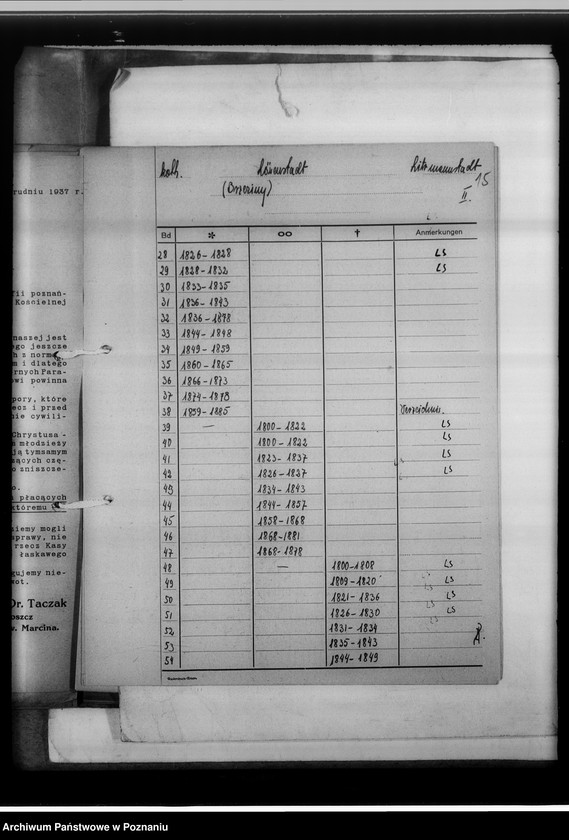 rudniu 1937 r.
kath. Löwenstadt Litzmannstadt
(Brzeziny) II. 15
Bd * ∞ † Anmerkungen
28 1826-1828 LS
29 1828-1832 LS
30 1833-1835
31 1836-1843
32 1836-1878
33 1844-1848
34 1849-1859
35 1860-1865
36 1866-1873
37 1874-1878
38 1859-1885 Verzeichnis.
39 — 1800-1822 LS
40 1800-1822 LS
41 1823-1837 LS
42 1826-1837 LS
43 1834-1843
44 1844-1857
45 1858-1868
46 1868-1881
47 1868-1878
48 — 1800-1808 LS
49 1809-1820 LS
50 1821-1836 LS
51 1826-1830 LS
52 1831-1834
53 1835-1843
54 1844-1849
fii poznań-
Kościelnej
naszej jest
ego jeszcze
h z norm
m i dlatego
rnych Para-
wi powinna
pory, które
ecz i przed
nie cywili-
Chrystusa -
młodzieży
ją tymsamym
zących czę-
o zniszcze-
o.
płacących
któremu
iemy mogli
sprawy, nie
rzecz Kasy
łaskawego
gujemy nie-
wot.
Dr. Taczak
oszcz
w. Marcina.
Archiwum Państwowe w Poznaniu